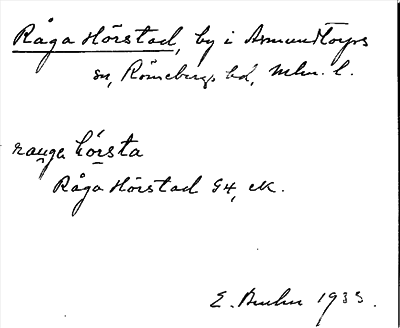 Råga Hörstad, by i Asmundtorps
sn, Rönnebergs hd, Mlm. l.
rauga hórsta
Råga Hörstad G4, ek.
E. Bruhn 1933.